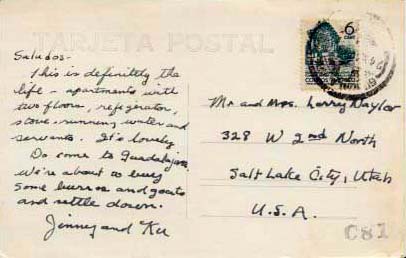 TARJETA POSTAL
Saludos-
This is definitely the
life - apartments with
two floors, refrigerator,
stove, running water and
servants. It's lovely.
Do come to Guadalajara.
We're about to buy
some burros and goats
and settle down.
Jinney and Ken
6
Mr and Mrs. Larry Naylor
328 W 2nd North
Salt Lake City, Utah
U.S.A.
C81